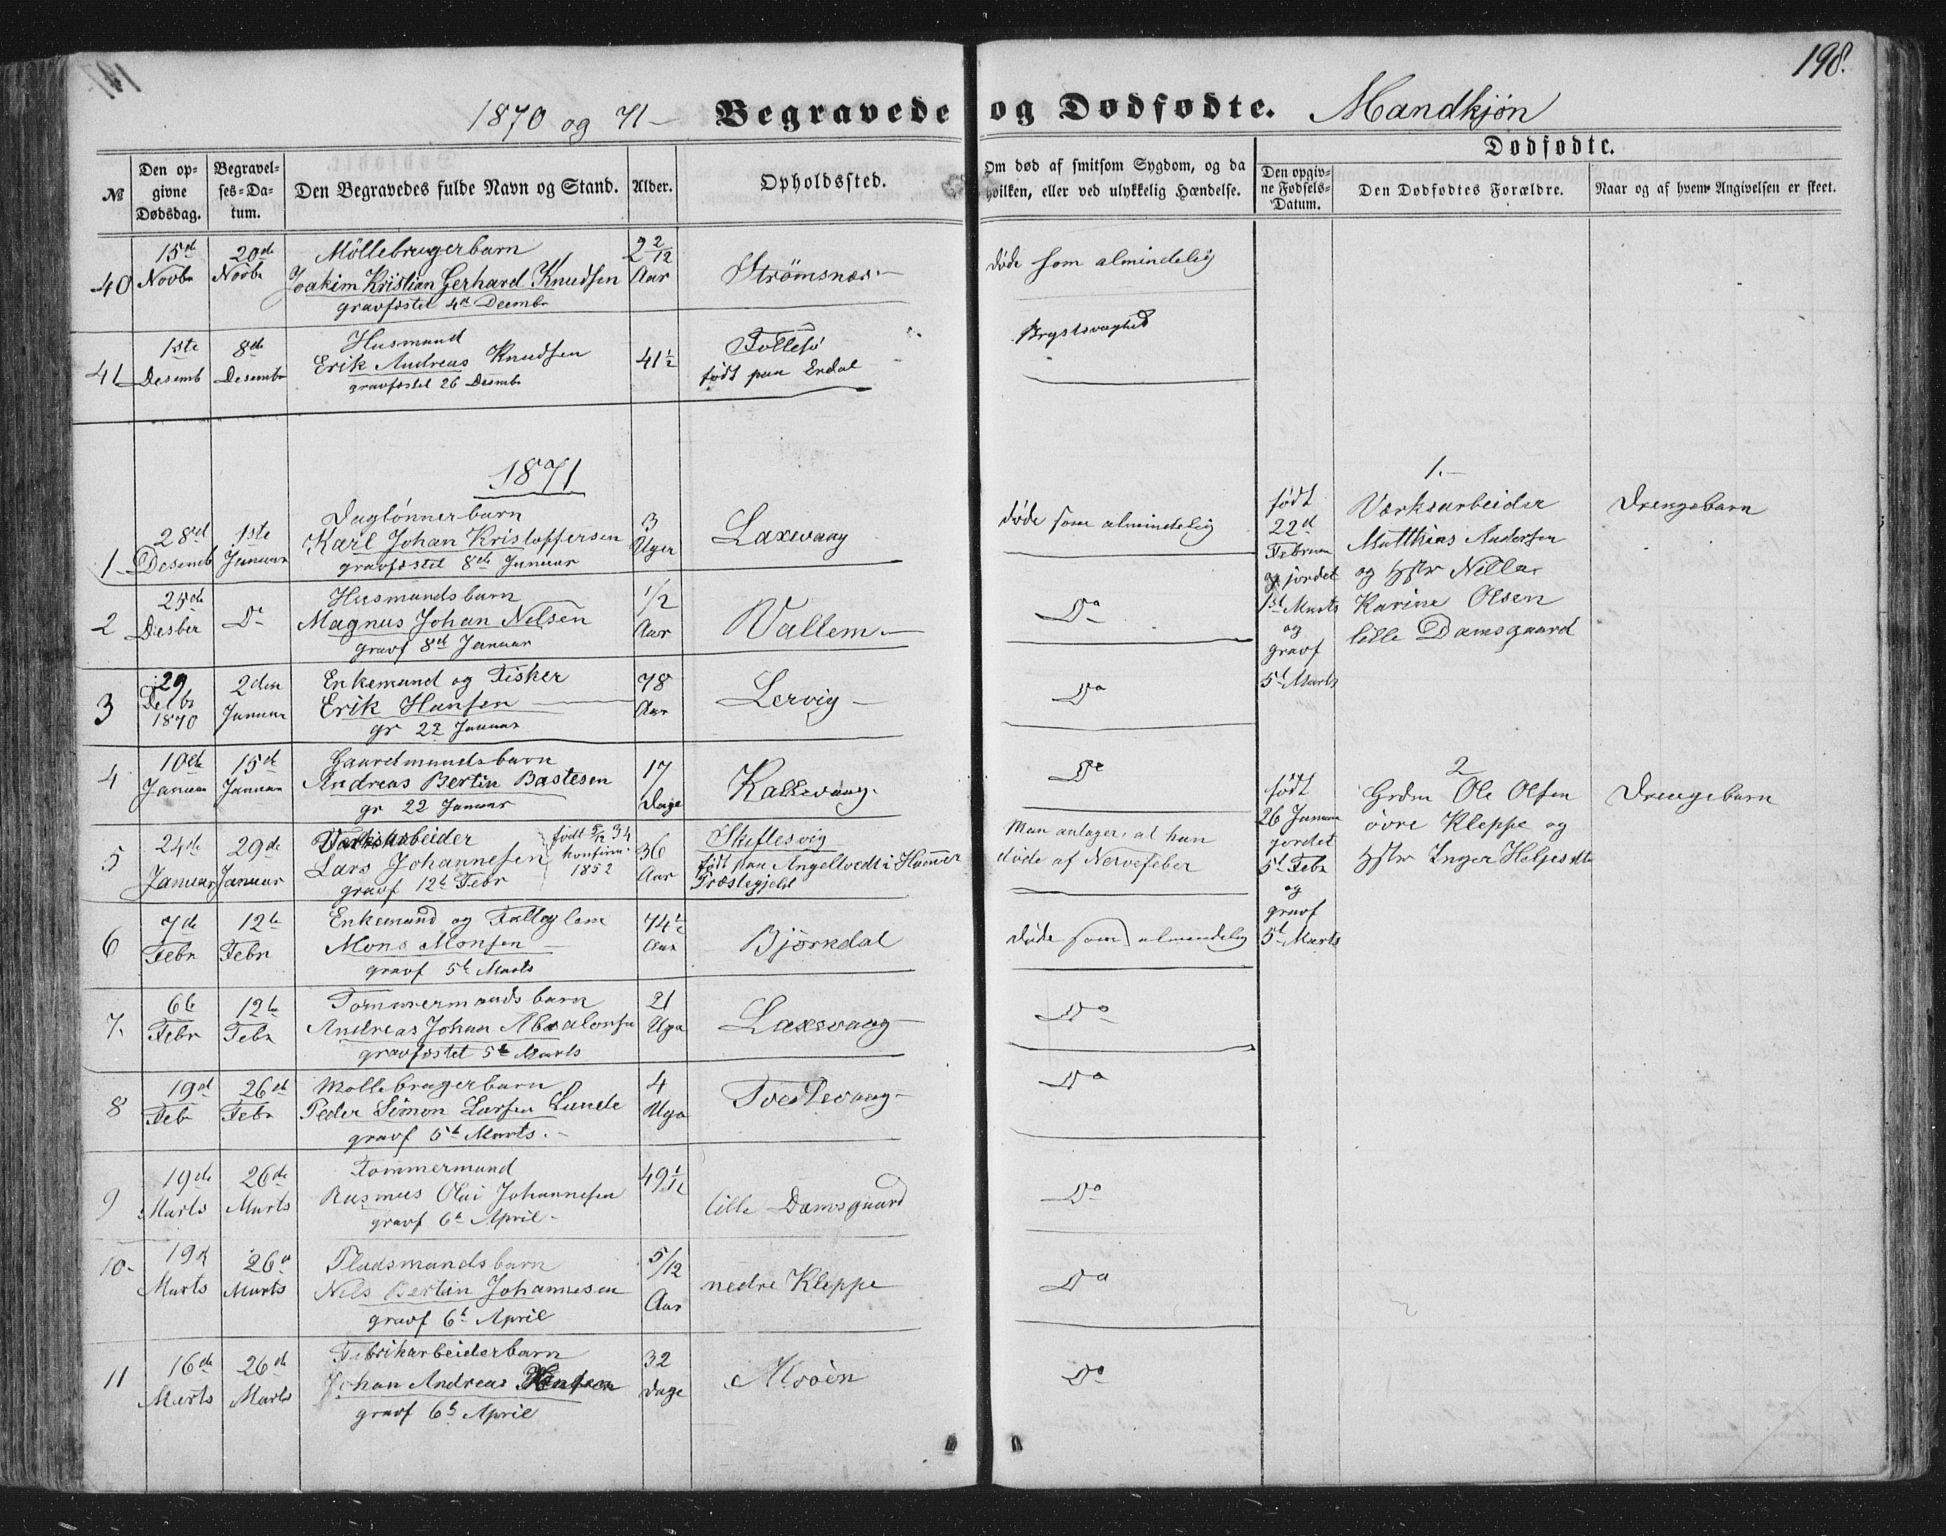 198.
1870 og 71 — Begravede og Dødfødte. Mandkjön
№
Den opgivne Dødsdag.
Begravelses-Datum.
Den Begravedes fulde Navn og Stand.
Alder.
Opholdssted.
Om død af smitsom Sygdom, og da hvilken, eller ved ulykkelig Hændelse.
Dødfødte.
Den opgivne Fødsels-Datum.
Den Dødfødtes Forældre.
Naar og af hvem Angivelsen er skeet.
40 15d Novbr 20de Novbr Möllebrugerbarn 2 2/12 Aar Strömsnæs — døde som almindelig
Joakim Kristian Gerhard Knudsen
gravfæstet 4de Decembr
41 1ste Desemb 8de Desembr Husmand 41½ Brystsvaghed
Erik Andreas Knudsen
gravfæstet 26 Desembr
født paa Erdal
1871
1 28de Desemb 1ste Januar Daglönnerbarn 3 Uger Laxevaag døde som almindelig
Karl Johan Kristoffersen
gravfæstet 8de Januar
2 25de Desber Do Husmandsbarn 1/2 Aar Vallem — Do
Magnus Johan Nelsen
gravf 8de Januar
3 29 Delbr 1870 2den Januar Enkemand og Fisker 78 Aar Lervig — Do
Erik Hansen
gr 22 Januar
4 10de Januar 15de Januar Gaardmandsbarn 17 Dage Kallevaag. Do
Andreas Bertin Bastesen
gr 22 Januar
5 24de Januar 29de Januar Værksarbeider 36 Aar Skiftesvig Man antager, at han
Lars Johannesen født 5/12 34 konfirm. 1852 født paa Angeltvedt i Hammer døde af Nervefeber
gravf 12t Febr Præstegjeld
6 7de Febr 12te Febr Enkemand og Fattiglem 74½ Aar Björkdal døde som almendelig
Mons Monsen
gravf 5te Marts
7. 6te Febr 12te Febr Tømmermandsbarn 21 Uge Laxevaag — Do
Andreas Johan Absalonsen
gravfæstet 5te Marts
8 19de Feb 26de Febr Möllebrugerbarn 4 Uge Do
Peder Simon Larsen Lunde
gravf 5te Marts. —
9 19de Marts 26de Marts Tømmermand 49 1/12 lille Damsgaard Do
Rasmus Olai Johannesen
gravf 6te April —
10 — 19de Marts 26de Marts Pladsmandsbarn 5/12 Aar nedre Kleppe Do
Nils Bertin Johannesen
gravf 6te April
11 16de Marts 26de Marts Fabrikarbeiderbarn 32 Dage Alvöen Do
Johan Andreas Hansen
gravf 6te April
1. —
født 22d Februar og jordet 1st Marts og gravf 5t Marts
Værksarbeider
Matthias Andersen
og Hstr Nella
Karine Olsen
lille Damsgaard
Drengebarn
2
født 26 Januar jordet 5t Febr og gravf 5t Marts
Grdm Ole Olsen
övre Kleppe og
Hstr Inger Helgesdtr
Drengebarn